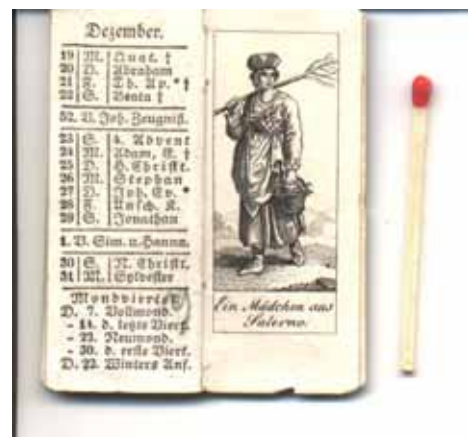 Dezember.
19 M. Quat. †
20 D. Abraham
21 F. Th. Ap. * †
22 S. Beata †
52. V. Joh. Zeugniß.
23 S. 4. Advent
24 M. Adam, E. †
25 D. H. Christt.
26 M. Stephan
27 D. Joh. Ev. *
28 F. Unsch. K.
29 S. Jonathan
1. V. Sim. u. Hanna.
30 S. N. Christt.
31 M. Sylvester
Mondviertel
D. 7. Vollmond.
- 14. d. letzte Viert.
- 23. Neumond.
- 30. d. erste Viert.
D. 22. Winters Anf.
Ein Mädchen aus
Salerno.